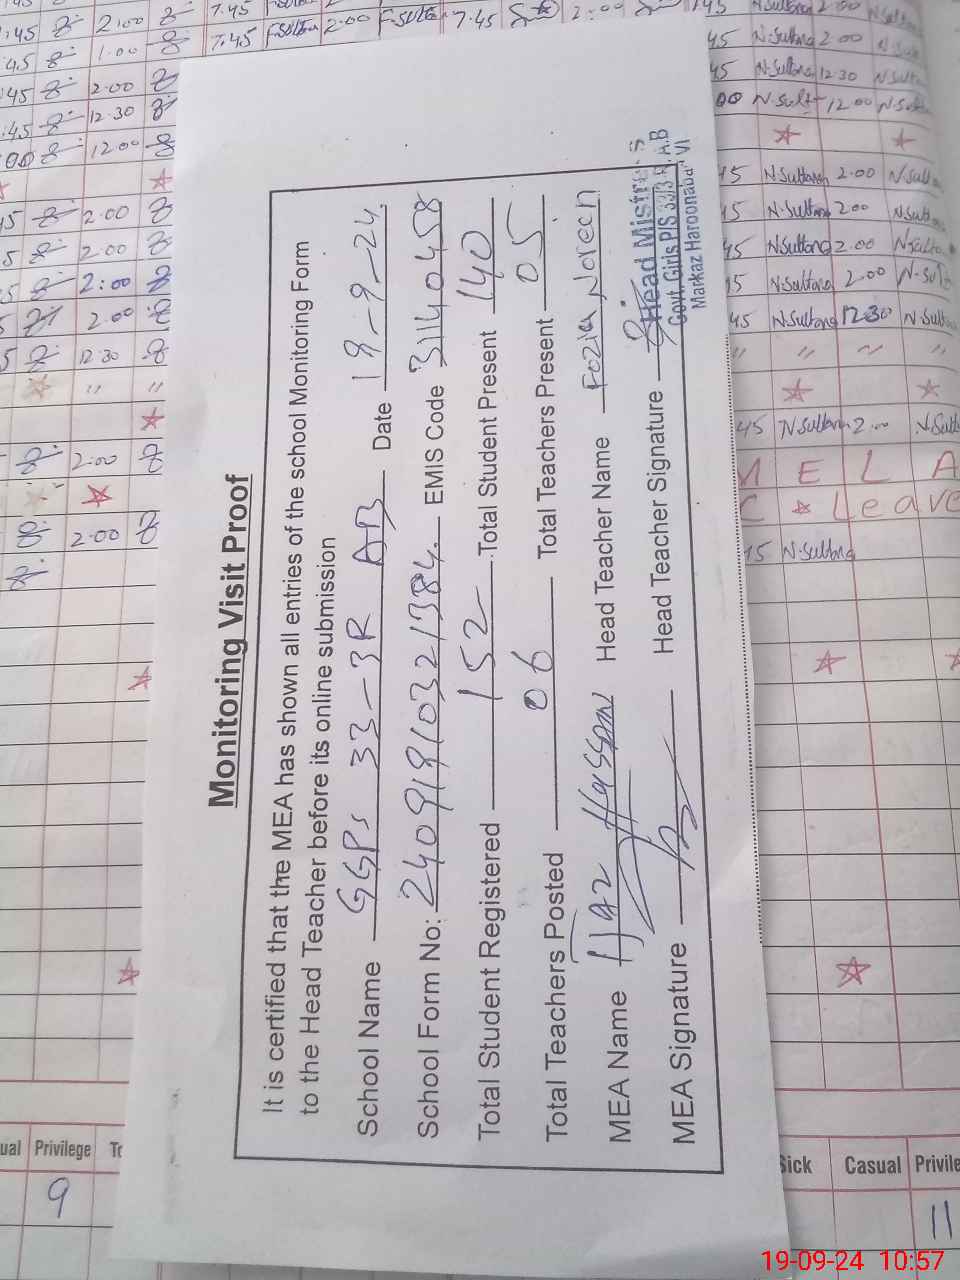 Monitoring Visit Proof
It is certified that the MEA has shown all entries of the school Monitoring Form
to the Head Teacher before its online submission
School Name GGPs 33-3R AB Date 19-9-24
School Form No: 2409191032 1384 EMIS Code 31140458
Total Student Registered 152 Total Student Present 140
Total Teachers Posted 06 Total Teachers Present 05
MEA Name Ijaz Hassan Head Teacher Name Fozia Noreen
MEA Signature Head Teacher Signature
Head Mistress
Govt. Girls P/S 33/3.R A.B
Markaz Haroonabad VI
7.45 2.00 7.45 2.00
7.45 F.Sultan 2.00 F.Sultan 7.45 2:00
1.00
2.00
12.30
12.00
2.00
2.00
2:00
2.00
12.30
" "
2.00
2.00
N.Sultana 2.00
45 N.Sultana 2.00
45 N.Sultana 12.30 N.Sultana
00 N.Sult 12.00 N.Sultan
45 N.Sultana 2.00
45 N.Sultana 2.00
45 N.Sultana 2.00
45 N.Sultana 2.00
45 N.Sultana 12.30 N.Sultan
" " "
45 N.Sultana 2.00
M E L A
C Leave
45 N.Sultana
Privilege
9
Sick Casual Privile
11
19-09-24 10:57